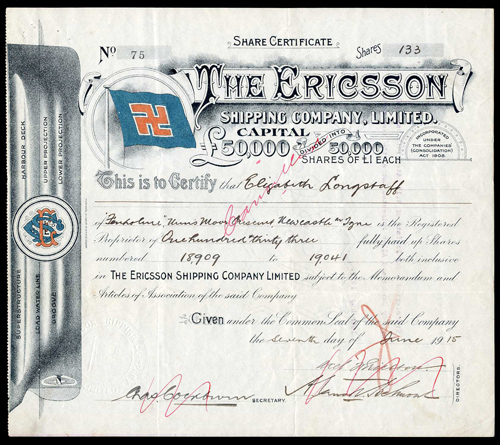 SHARE CERTIFICATE
No 75
Shares 133
THE ERICSSON
SHIPPING COMPANY, LIMITED.
CAPITAL
£50,000 DIVIDED INTO 50,000
SHARES OF £1 EACH
INCORPORATED
UNDER
THE COMPANIES
(CONSOLIDATION)
ACT 1908.
This is to Certify that Elizabeth Longstaff
of Nuns Moor Crescent Newcastle on Tyne is the Registered
Proprietor of One hundred & thirty three fully paid up Shares
numbered 18909 to 19041 both inclusive
in THE ERICSSON SHIPPING COMPANY LIMITED subject to the Memorandum and
Articles of Association of the said Company
Given under the Common Seal of the said Company
the Seventh day of June 1915
SECRETARY
DIRECTORS.
HARBOUR DECK
UPPER PROJECTION
LOWER PROJECTION
SUPERSTRUCTURE
LOAD WATER LINE
GROOVE